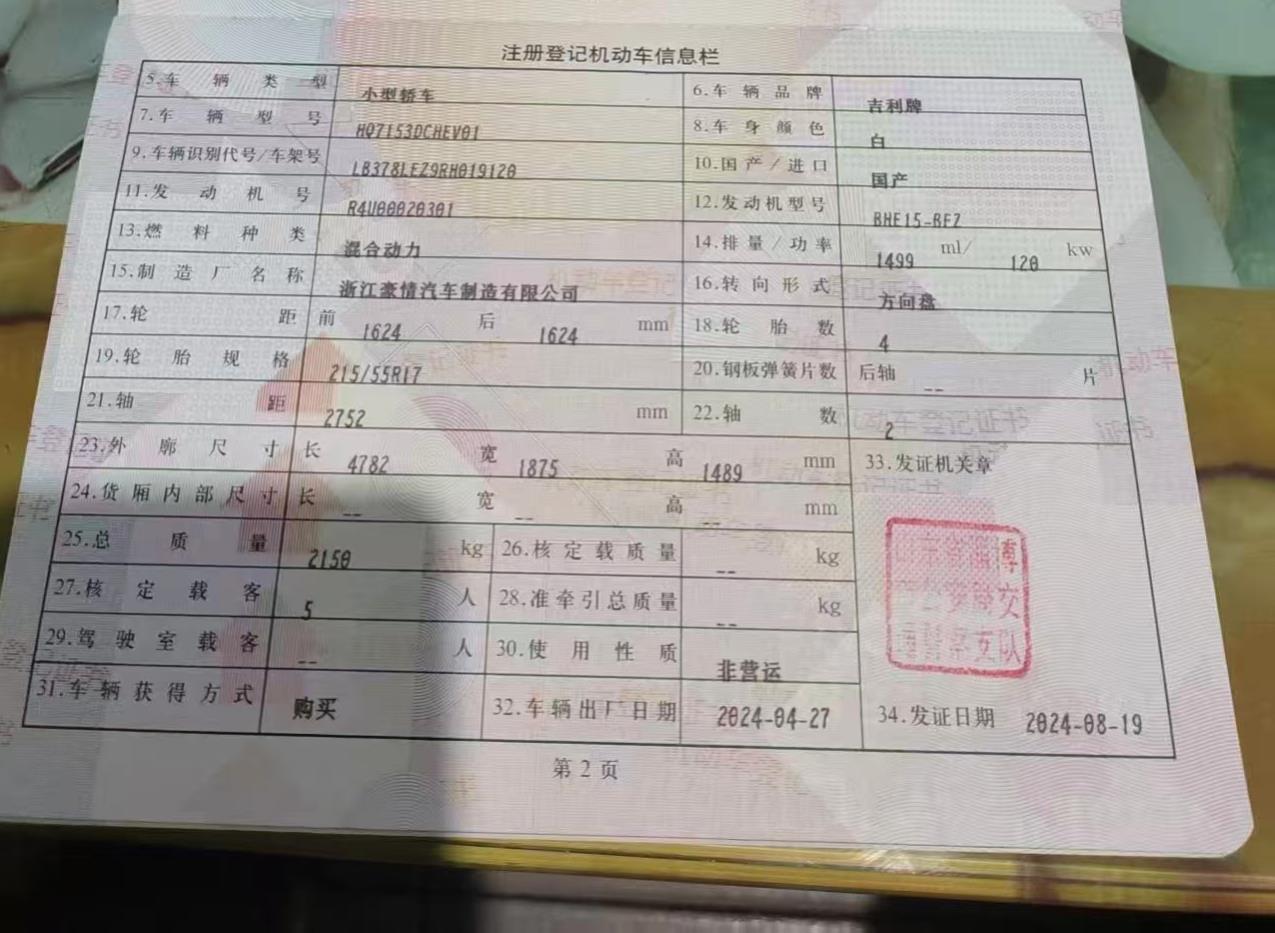 注册登记机动车信息栏
5.车辆类型 小型轿车 6.车辆品牌 吉利牌
7.车辆型号 HQ7153DCHEV01 8.车身颜色 白
9.车辆识别代号/车架号 LB378LEZ9RH019120 10.国产/进口 国产
11.发动机号 R4U00020301 12.发动机型号 BHE15-BFZ
13.燃料种类 混合动力 14.排量/功率 1499 ml/ 120 kw
15.制造厂名称 浙江豪情汽车制造有限公司 16.转向形式 方向盘
17.轮距 前 1624 后 1624 mm 18.轮胎数 4
19.轮胎规格 215/55R17 20.钢板弹簧片数 后轴 -- 片
21.轴距 2752 mm 22.轴数 2
23.外廓尺寸 长 4782 宽 1875 高 1489 mm 33.发证机关章
24.货厢内部尺寸 长 -- 宽 -- 高 -- mm
25.总质量 2150 kg 26.核定载质量 -- kg
27.核定载客 5 人 28.准牵引总质量 -- kg
29.驾驶室载客 -- 人 30.使用性质 非营运
31.车辆获得方式 购买 32.车辆出厂日期 2024-04-27 34.发证日期 2024-08-19
第2页